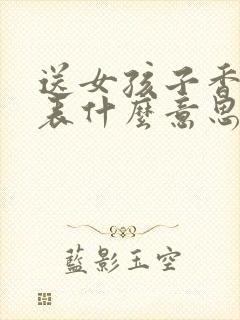 送女孩子香
表什麼意思
藍影玉空